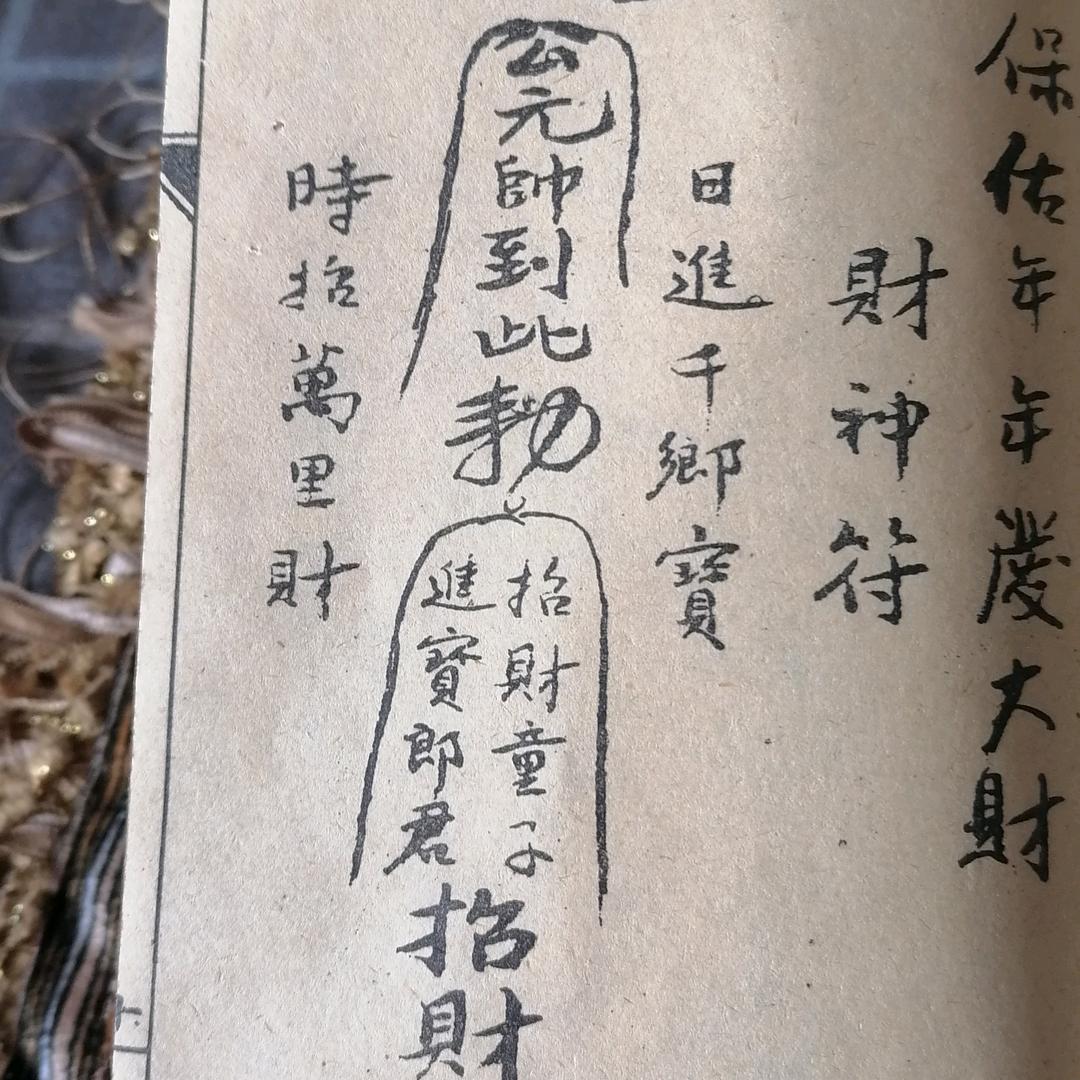 保佑年年發大財
財神符
日進千鄉寶
公元帥到此勅
招財童子
進寶郎君
招財
時招萬里財